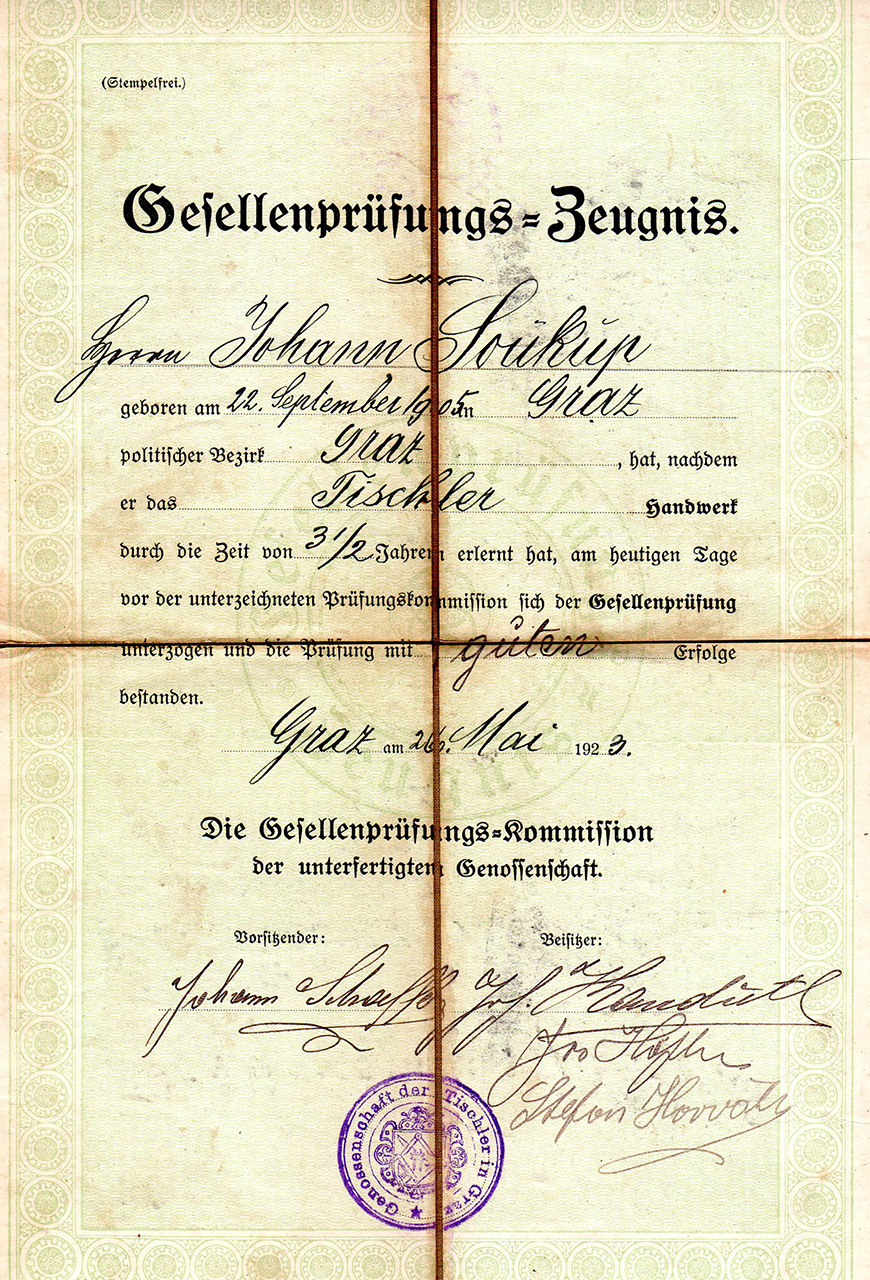 (Stempelfrei.)
Gesellenprüfungs-Zeugnis.
Herrn Johann Soukup
geboren am 22. September 1905 in Graz
politischer Bezirk Graz, hat, nachdem
er das Tischler Handwerk
durch die Zeit von 3 1/2 Jahren erlernt hat, am heutigen Tage
vor der unterzeichneten Prüfungskommission sich der Gesellenprüfung
unterzogen und die Prüfung mit guten Erfolge
bestanden.
Graz am 26. Mai 1923.
Die Gesellenprüfungs-Kommission
der unterfertigten Genossenschaft.
Vorsitzender: Beisitzer:
Johann Jos.
Stefan Horváth
Genossenschaft der Tischler in Graz